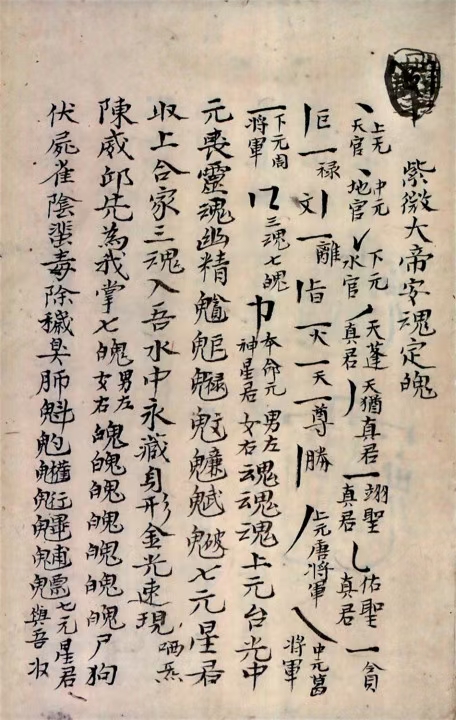 紫微大帝字魂定魄
丶上元天官丶中元地官㇏下元水官丿天蓬真君丿天猶真君一翊聖真君乚佑聖真君一貪
丨巨一禄丨文一離丨旨一大一天一尊丨勝丿上元唐將軍㇏中元葛將軍
一下元周將軍三魂七魄巾本命元神星君男左女右魂魂魂上元台光中
元喪靈魂幽精七元星君
收上合家三魂入吾水中永藏身形金光速現
陳威邱先為我掌七魄男左女右魄魄魄魄魄魄魄尸狗
伏屍雀陰蜚毒除穢臭肺魁魓七元星君與吾收